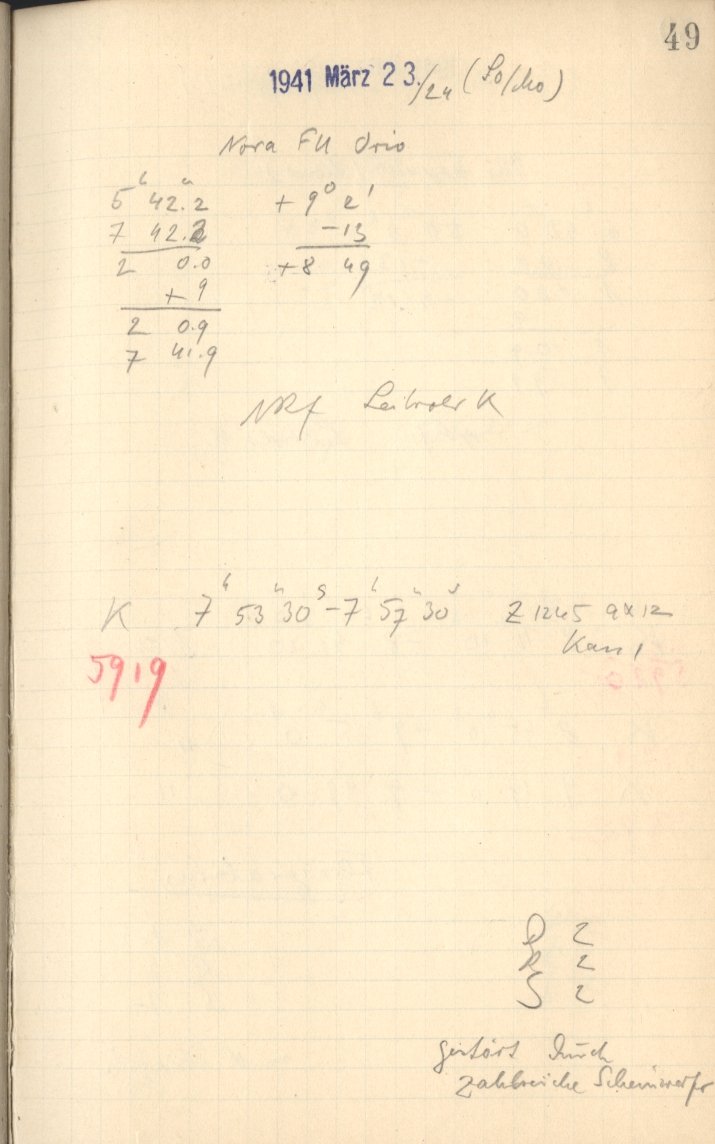 49
1941 März 23./24 (So/Mo)
Nova FU Orio
5h 42.2m + 9° 2'
7 42.2 -13
2 0.0 +8 49
+ 9
2 0.9
7 41.9
NRf K
K 7h 53m 30s - 7h 57m 30s Z 1245 9x12
Kass 1
5919
D 2
R 2
S 2
gestört durch
zahlreiche Scheinwerfer